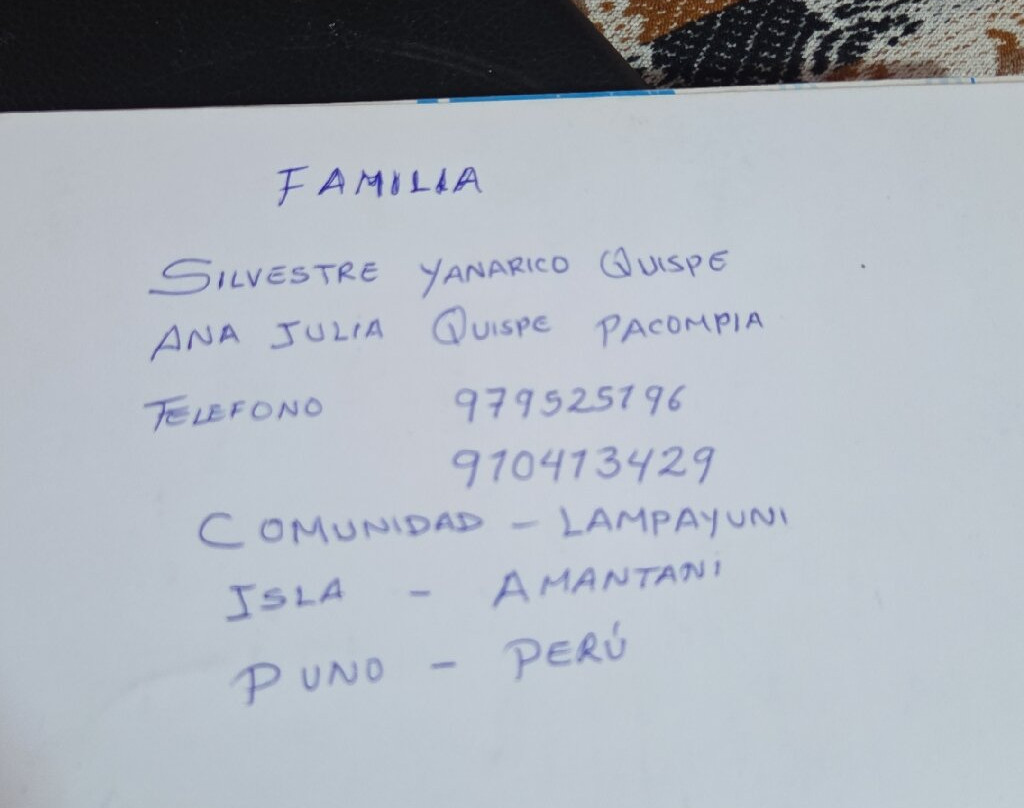 FAMILIA
SILVESTRE YANARICO QUISPE
ANA JULIA QUISPE PACOMPIA
TELEFONO 979525196
910413429
COMUNIDAD - LAMPAYUNI
ISLA - AMANTANI
PUNO - PERÚ